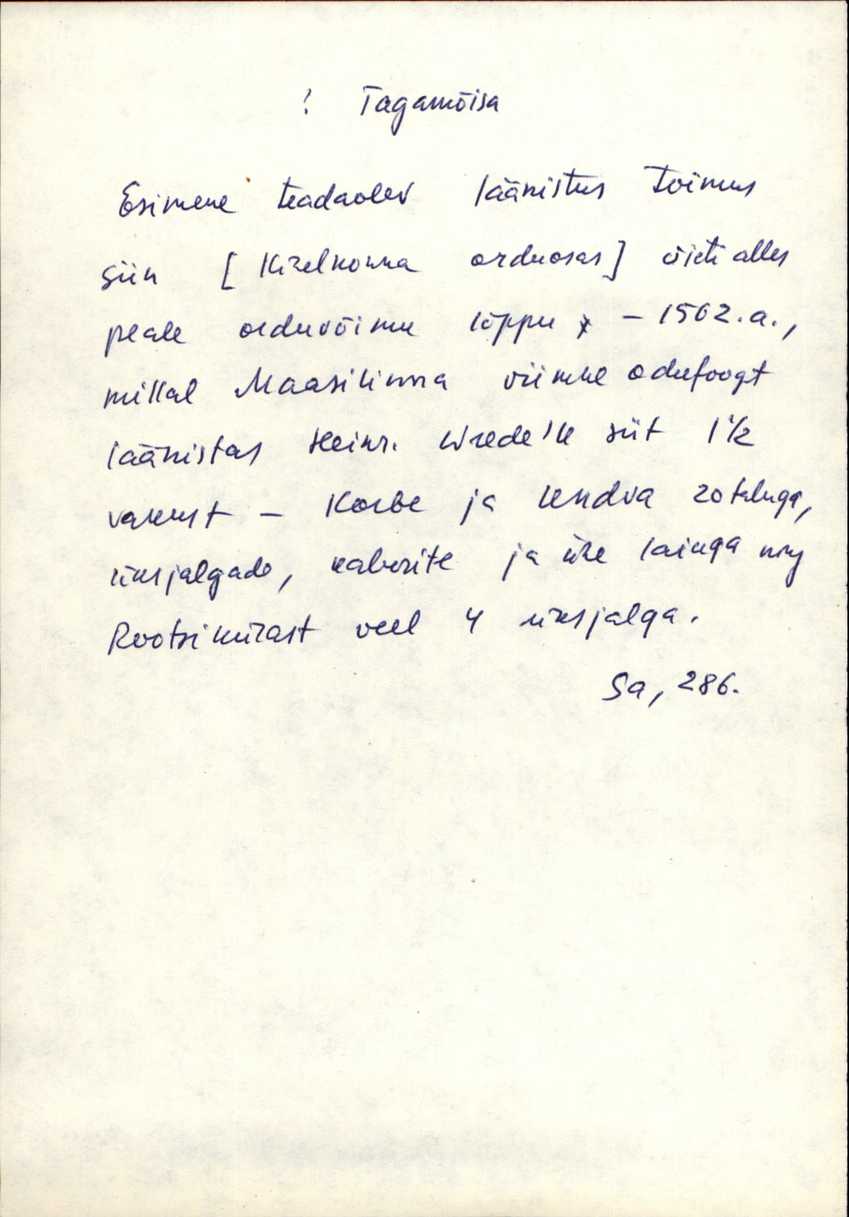 ! Tagamõisa
Esimene teadaolev läänistus toimus
siin [Kihelkonna orduosas] võeti alles
peale orduvõimu lõppu – 1562.a.,
millal Maasilinna viimne odufoogt
läänistas Heinr. Wrede'le siit 1½
vakust – Korbe ja Kendva 20 taluga,
üksjalgade, vaberite ja ühe laiuga ning
Rootsikülast veel 4 üksjalga.
Sa, 286.